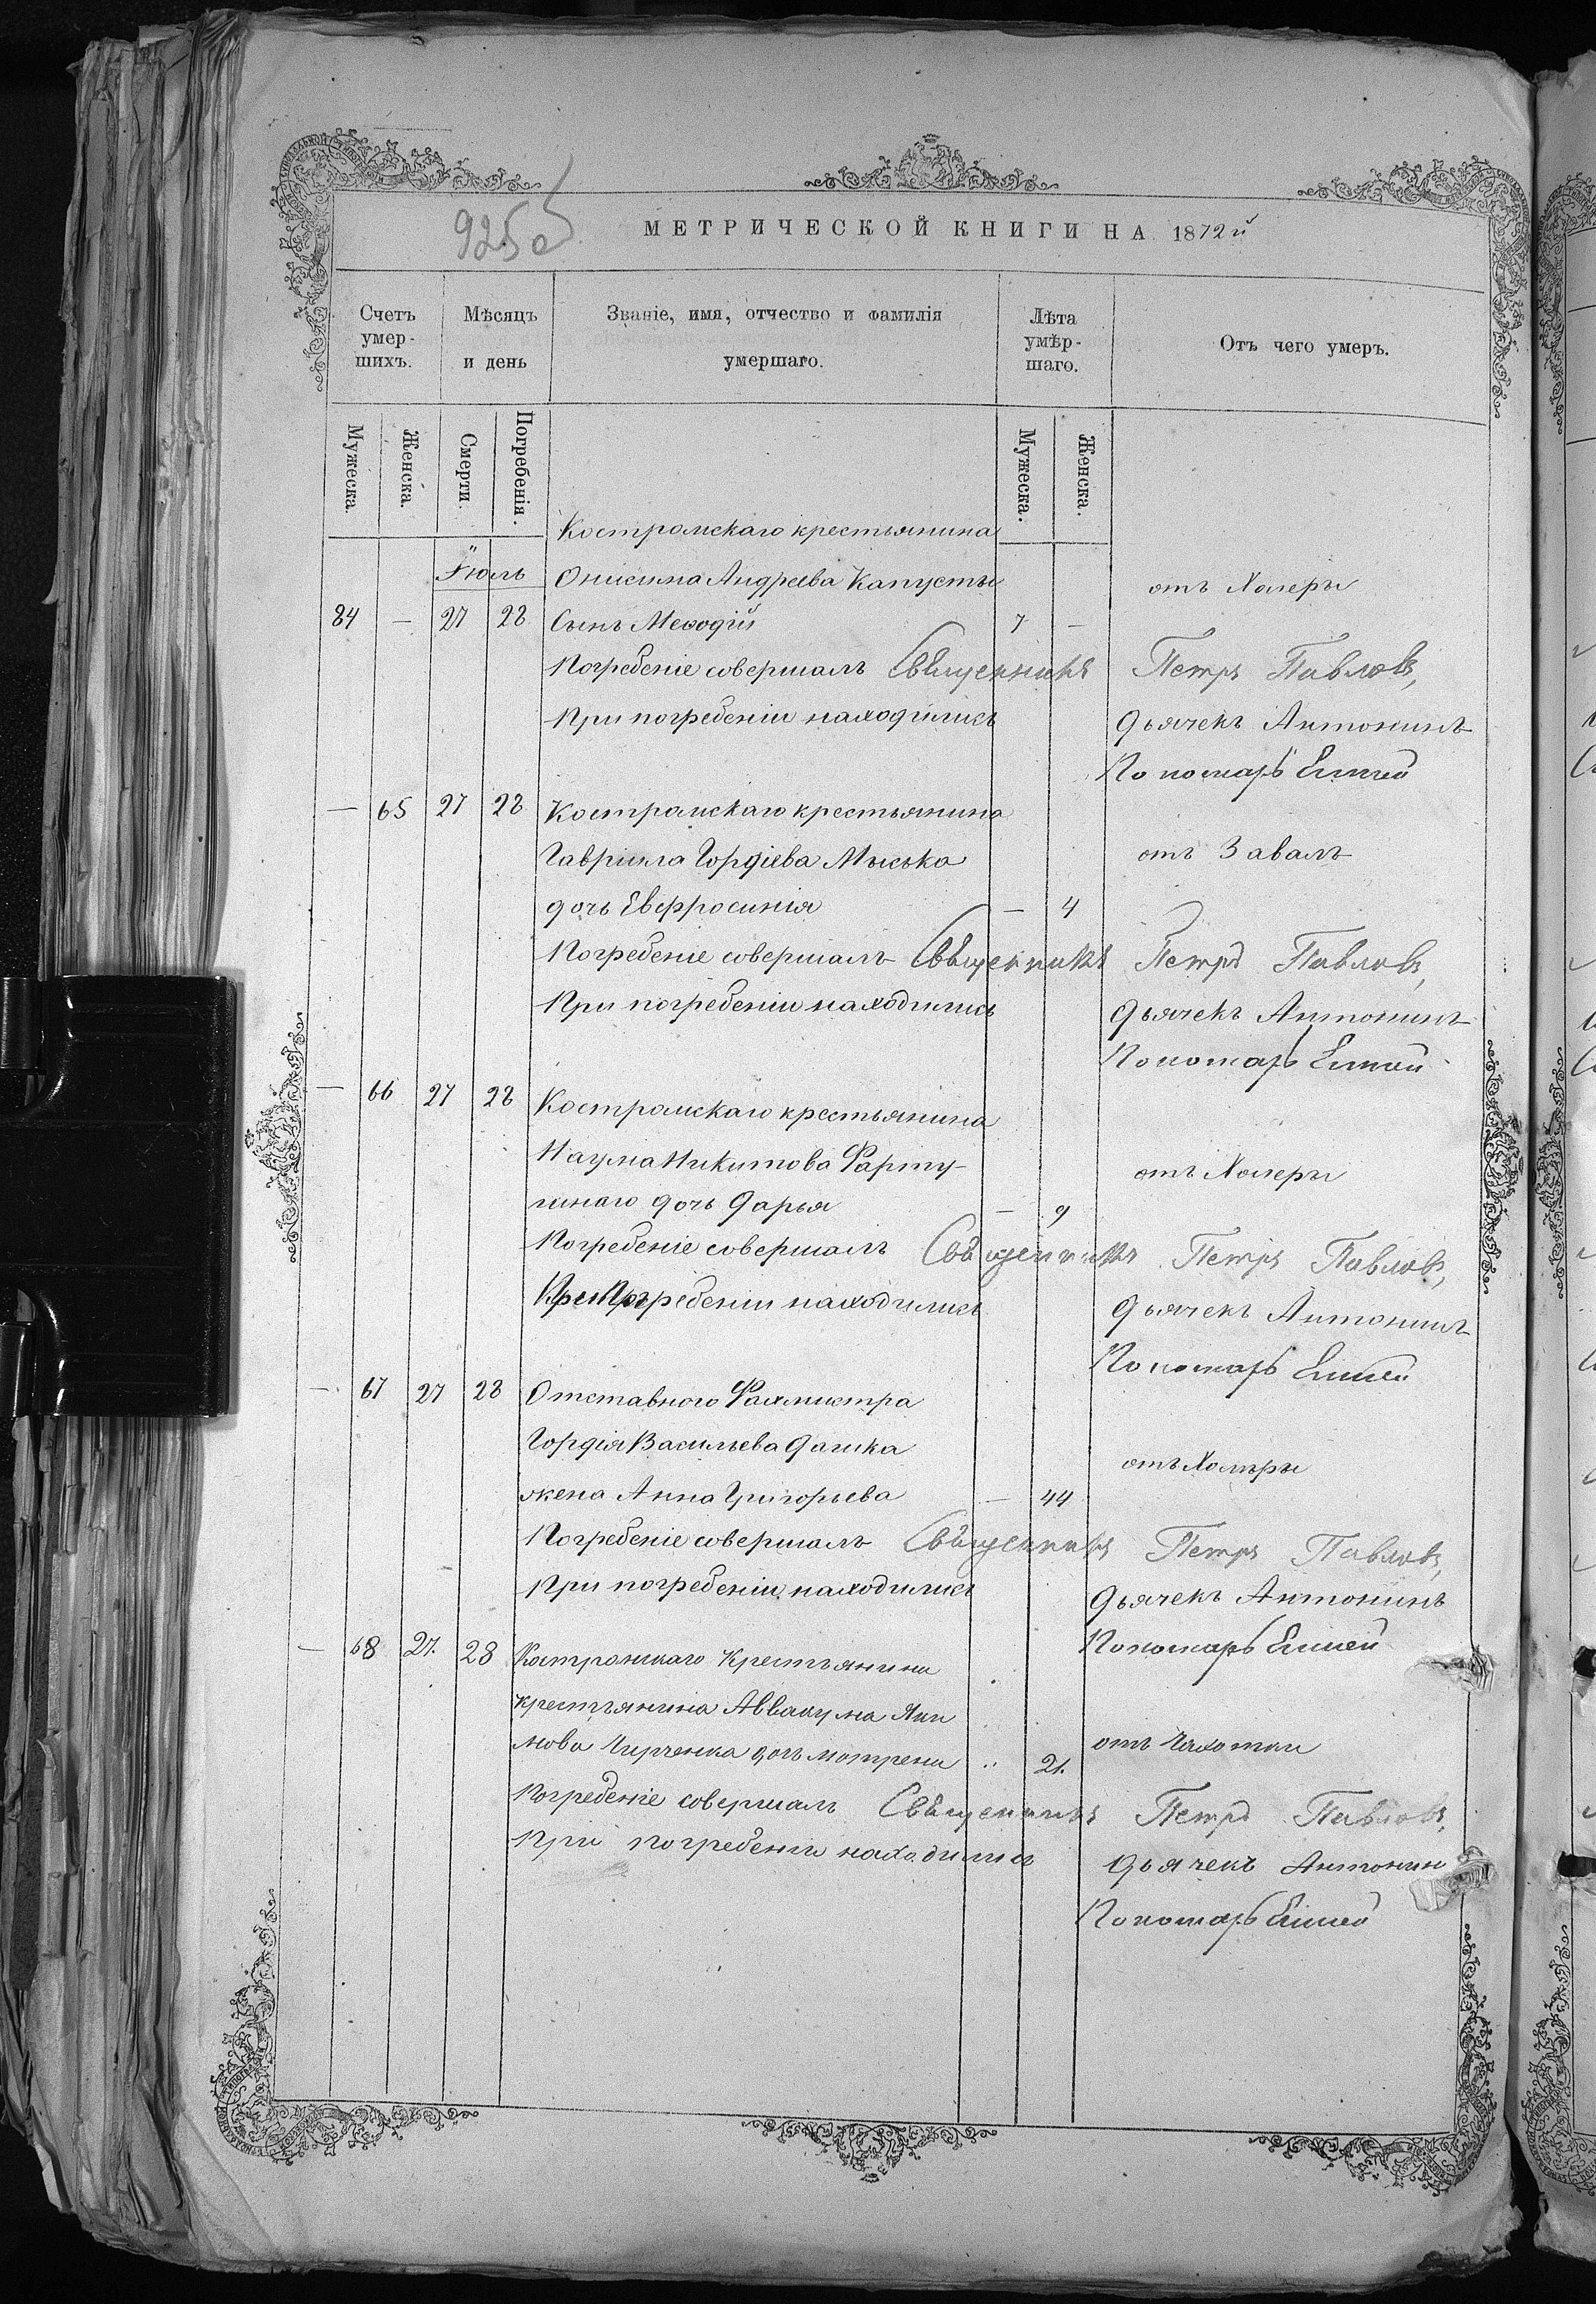 925 об
МЕТРИЧЕСКОЙ КНИГИ НА 1872й
Счетъ умер-шихъ.
Мѣсяцъ и день
Званіе, имя, отчество и фамилія умершаго.
Лѣта умѣр-шаго.
Отъ чего умеръ.
Мужеска. Женска. Смерти. Погребенія. Мужеска. Женска.
Костромскаго крестьянина
Іюль Онисима Андреева Капусты отъ Холеры
84 — 27 28 Сынъ Меѳодій 7 —
Погребеніе совершалъ Священникъ Петръ Павловъ,
При погребеніи находились дьячекъ Антонинъ
Пономарь
— 65 27 28 Костромскаго крестьянина
Гавріила Гордіева Мыська отъ Завалъ
дочь Евфросинія — 4
Погребеніе совершалъ Священникъ Петръ Павловъ,
При погребеніи находились дьячекъ Антонинъ
Пономарь
— 66 27 28 Костромскаго крестьянина
Наума Никитова Фарту- отъ Холеры
шнаго дочь Дарья — 9
Погребеніе совершалъ Священникъ Петръ Павловъ,
При Погребеніи находились дьячекъ Антонинъ
Пономарь
— 67 27 28 Отставного Вахмистра
Гордія Васильева Дашка отъ Холѣры
жена Анна Григорьева — 44
Погребеніе совершалъ Священникъ Петръ Павловъ,
При погребеніи находились дьячекъ Антонинъ
Пономарь
— 68 27. 28 Костромскаго Крестьянина
крестьянина Аввакума Яки
мова дочь Матрена „ 21. отъ Чахотки
Погребеніе совершалъ Священникъ Петръ Павловъ,
При погребеніи находились дьячекъ Антонин
Пономарь